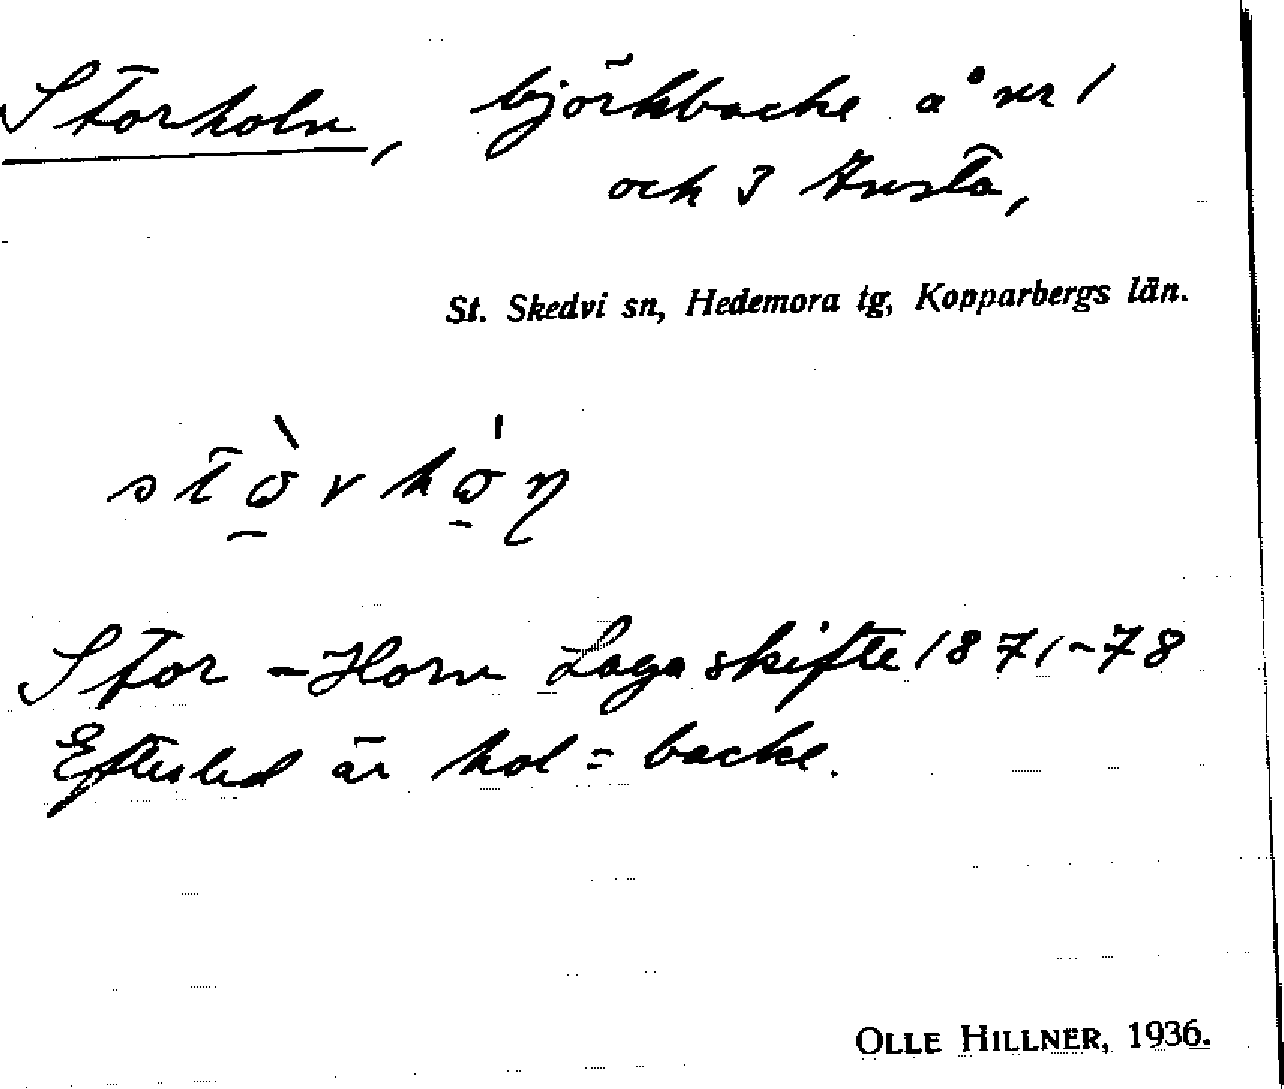 Storholn, björkbacke å nr 1
och 3 Husta,
St. Skedvi sn, Hedemora tg, Kopparbergs län.
Stor-Horn Laga skifte 1871-78
Efterled är hol = backe.
OLLE HILLNER, 1936.